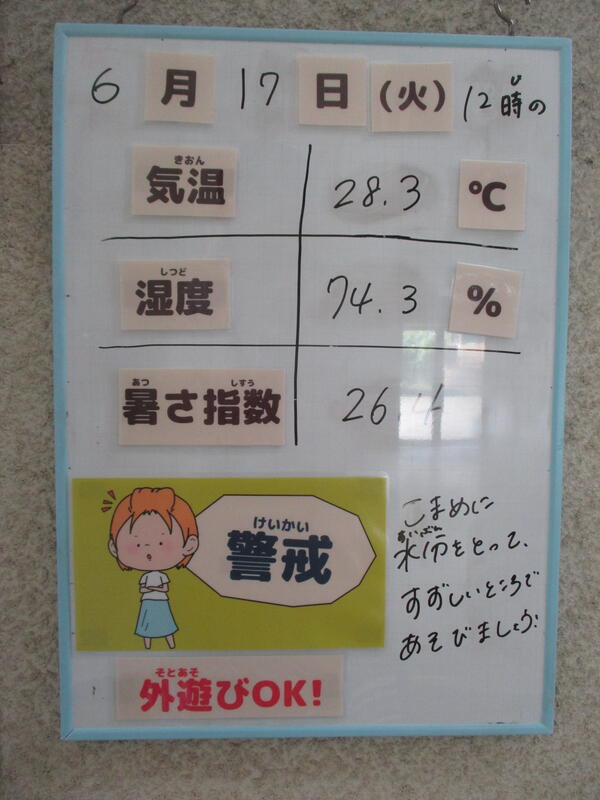 6月17日(火)12時の
じ
きおん
気温 28.3 ℃
しつど
湿度 74.3 %
あつ しすう
暑さ指数 26.4
けいかい
警戒
こまめに
すいぶん
水分をとって、
すずしいところで
あそびましょう。
そとあそ
外遊びOK!